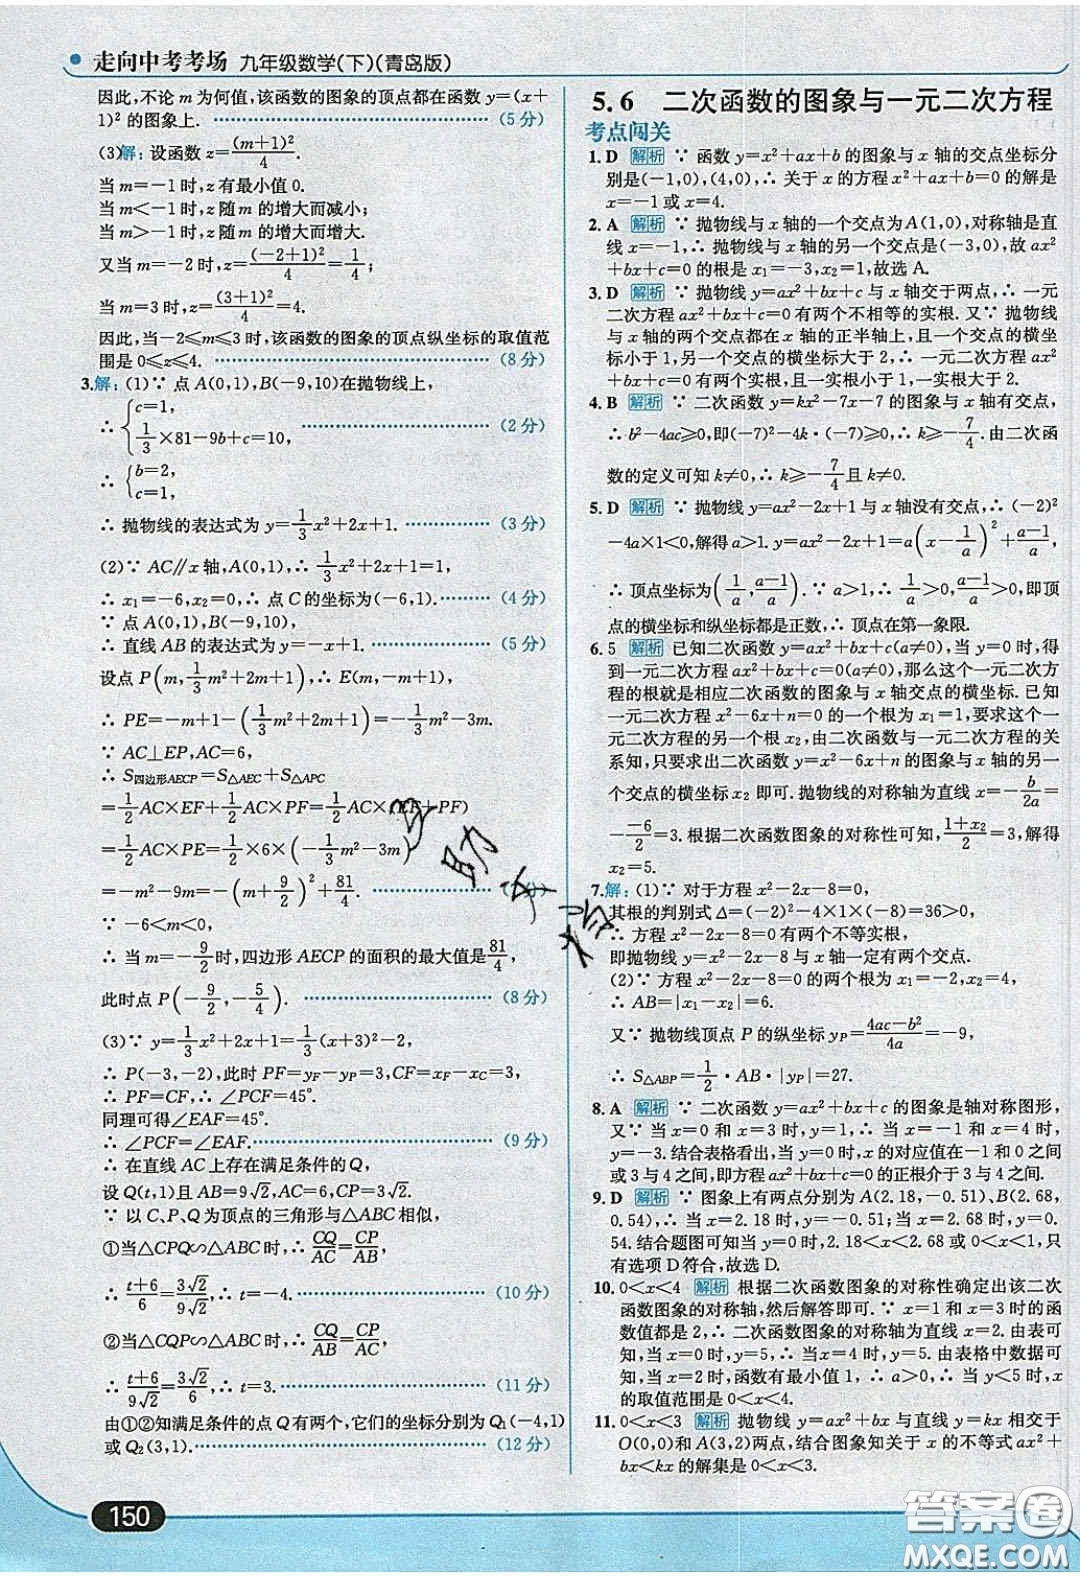 走向中考考场 九年级数学(下)(青岛版)
因此,不论m为何值,该函数的图象的顶点都在函数y=(x+
1)²的图象上. (5分)
(3)解:设函数z=(m+1)²/4.
当m=-1时,z有最小值0.
当m<-1时,z随m的增大而减小;
当m>-1时,z随m的增大而增大.
又当m=-2时,z=(-2+1)²/4=1/4;
当m=3时,z=(3+1)²/4=4.
因此,当-2≤m≤3时,该函数的图象的顶点纵坐标的取值范
围是0≤z≤4. (8分)
3.解:(1)∵点A(0,1),B(-9,10)在抛物线上,
∴{c=1,
1/3×81-9b+c=10, (2分)
∴{b=2,
c=1,
∴抛物线的表达式为y=1/3x²+2x+1. (3分)
(2)∵AC∥x轴,A(0,1),∴1/3x²+2x+1=1,
∴x₁=-6,x₂=0,∴点C的坐标为(-6,1). (4分)
∵点A(0,1),B(-9,10),
∴直线AB的表达式为y=-x+1. (5分)
设点P(m,1/3m²+2m+1),∴E(m,-m+1),
∴PE=-m+1-(1/3m²+2m+1)=-1/3m²-3m.
∵AC⊥EP,AC=6,
∴S四边形AECP=S△AEC+S△APC
=1/2AC×EF+1/2AC×PF=1/2AC×(EF+PF)
=1/2AC×PE=1/2×6×(-1/3m²-3m)
=-m²-9m=-(m+9/2)²+81/4. 分)
∵-6<m<0,
∴当m=-9/2时,四边形AECP的面积的最大值是81/4,
此时点P(-9/2,-5/4). (8分)
(3)∵y=1/3x²+2x+1=1/3(x+3)²-2,
∴P(-3,-2),此时PF=yF-yP=3,CF=xF-xC=3,
∴PF=CF,∴∠PCF=45°.
同理可得∠EAF=45°.
∴∠PCF=∠EAF. (9分)
∴在直线AC上存在满足条件的Q,
设Q(t,1)且AB=9√2,AC=6,CP=3√2.
∵以C、P、Q为顶点的三角形与△ABC相似,
①当△CPQ∽△ABC时,∴CQ/AC=CP/AB,
∴(t+6)/6=3√2/9√2,∴t=-4. (10分)
②当△CQP∽△ABC时,∴CQ/AB=CP/AC,
∴(t+6)/9√2=3√2/6,∴t=3. (11分)
由①②知满足条件的点Q有两个,它们的坐标分别为Q₁(-4,1)
或Q₂(3,1). (12分)
5.6 二次函数的图象与一元二次方程
考点闯关
1.D 解析 ∵函数y=x²+ax+b的图象与x轴的交点坐标分
别是(-1,0),(4,0),∴关于x的方程x²+ax+b=0的解是
x=-1或x=4.
2.A 解析 ∵抛物线与x轴的一个交点为A(1,0),对称轴是直
线x=-1,∴抛物线与x轴的另一个交点是(-3,0),故ax²
+bx+c=0的根是x₁=-3,x₂=1,故选A.
3.D 解析 ∵抛物线y=ax²+bx+c与x轴交于两点,∴一元
二次方程ax²+bx+c=0有两个不相等的实根.又∵抛物线
与x轴的两个交点都在x轴的正半轴上,且一个交点的横坐
标小于1,另一个交点的横坐标大于2,∴一元二次方程ax²
+bx+c=0有两个实根,且一实根小于1,一实根大于2.
4.B 解析 ∵二次函数y=kx²-7x-7的图象与x轴有交点,
∴b²-4ac≥0,即(-7)²-4k·(-7)≥0,∴k≥-7/4.由二次函
数的定义可知k≠0,∴k≥-7/4且k≠0.
5.D 解析 ∵抛物线y=ax²-2x+1与x轴没有交点,∴(-2)²
-4a×1<0,解得a>1.y=ax²-2x+1=a(x-1/a)²+(a-1)/a,
∴顶点坐标为(1/a,(a-1)/a).∵a>1,∴1/a>0,(a-1)/a>0,即顶
点的横坐标和纵坐标都是正数,∴顶点在第一象限.
6.5 解析 已知二次函数y=ax²+bx+c(a≠0),当y=0时,得
到一元二次方程ax²+bx+c=0(a≠0),那么这个一元二次方
程的根就是相应二次函数的图象与x轴交点的横坐标.已知
一元二次方程x²-6x+n=0的一个根为x₁=1,要求这个一
元二次方程的另一个根x₂,由二次函数与一元二次方程的关
系知,只要求出二次函数y=x²-6x+n的图象与x轴的另一
个交点的横坐标x₂即可.抛物线的对称轴为直线x=-b/2a=
--6/2=3.根据二次函数图象的对称性可知,(1+x₂)/2=3,解得
x₂=5.
7.解:(1)∵对于方程x²-2x-8=0,
其根的判别式Δ=(-2)²-4×1×(-8)=36>0,
∴方程x²-2x-8=0有两个不等实根,
即抛物线y=x²-2x-8与x轴一定有两个交点.
(2)∵方程x²-2x-8=0的两个根为x₁=-2,x₂=4,
∴AB=|x₁-x₂|=6.
又∵抛物线顶点P的纵坐标yP=(4ac-b²)/4a=-9,
∴S△ABP=1/2·AB·|yP|=27.
8.A 解析 ∵二次函数y=ax²+bx+c的图象是轴对称图形,
又∵当x=0和x=3时,y=1,∴当x=-1和x=4时,
y=-3.结合表格看出,当y=0时,x的对应值在-1和0之间
或3与4之间,即方程ax²+bx+c=0的正根介于3与4之间.
9.D 解析 ∵图象上有两点分别为A(2.18,-0.51)、B(2.68,
0.54),∴当x=2.18时,y=-0.51;当x=2.68时,y=0.
54.结合题图可知当y=0时,2.18<x<2.68,只
有选项D符合,故选D.
10.0<x<4 解析 根据二次函数图象的对称性确定出该二次
函数图象的对称轴,然后解答即可.∵x=1和x=3时的函
数值都是2,∴二次函数图象的对称轴为直线x=2.由表可
知,当x=0时,y=5,∴当x=4时,y=5.由表格中数据可
知,当x=2时,函数有最小值1,∴a>0,∴当y<5时,x
的取值范围是0<x<4.
11.0<x<3 解析 抛物线y=ax²+bx与直线y=kx相交于
O(0,0)和A(3,2)两点,结合图象知关于x的不等式ax²+
bx<kx的解集是0<x<3.
150
答案圈
MXQE.COM